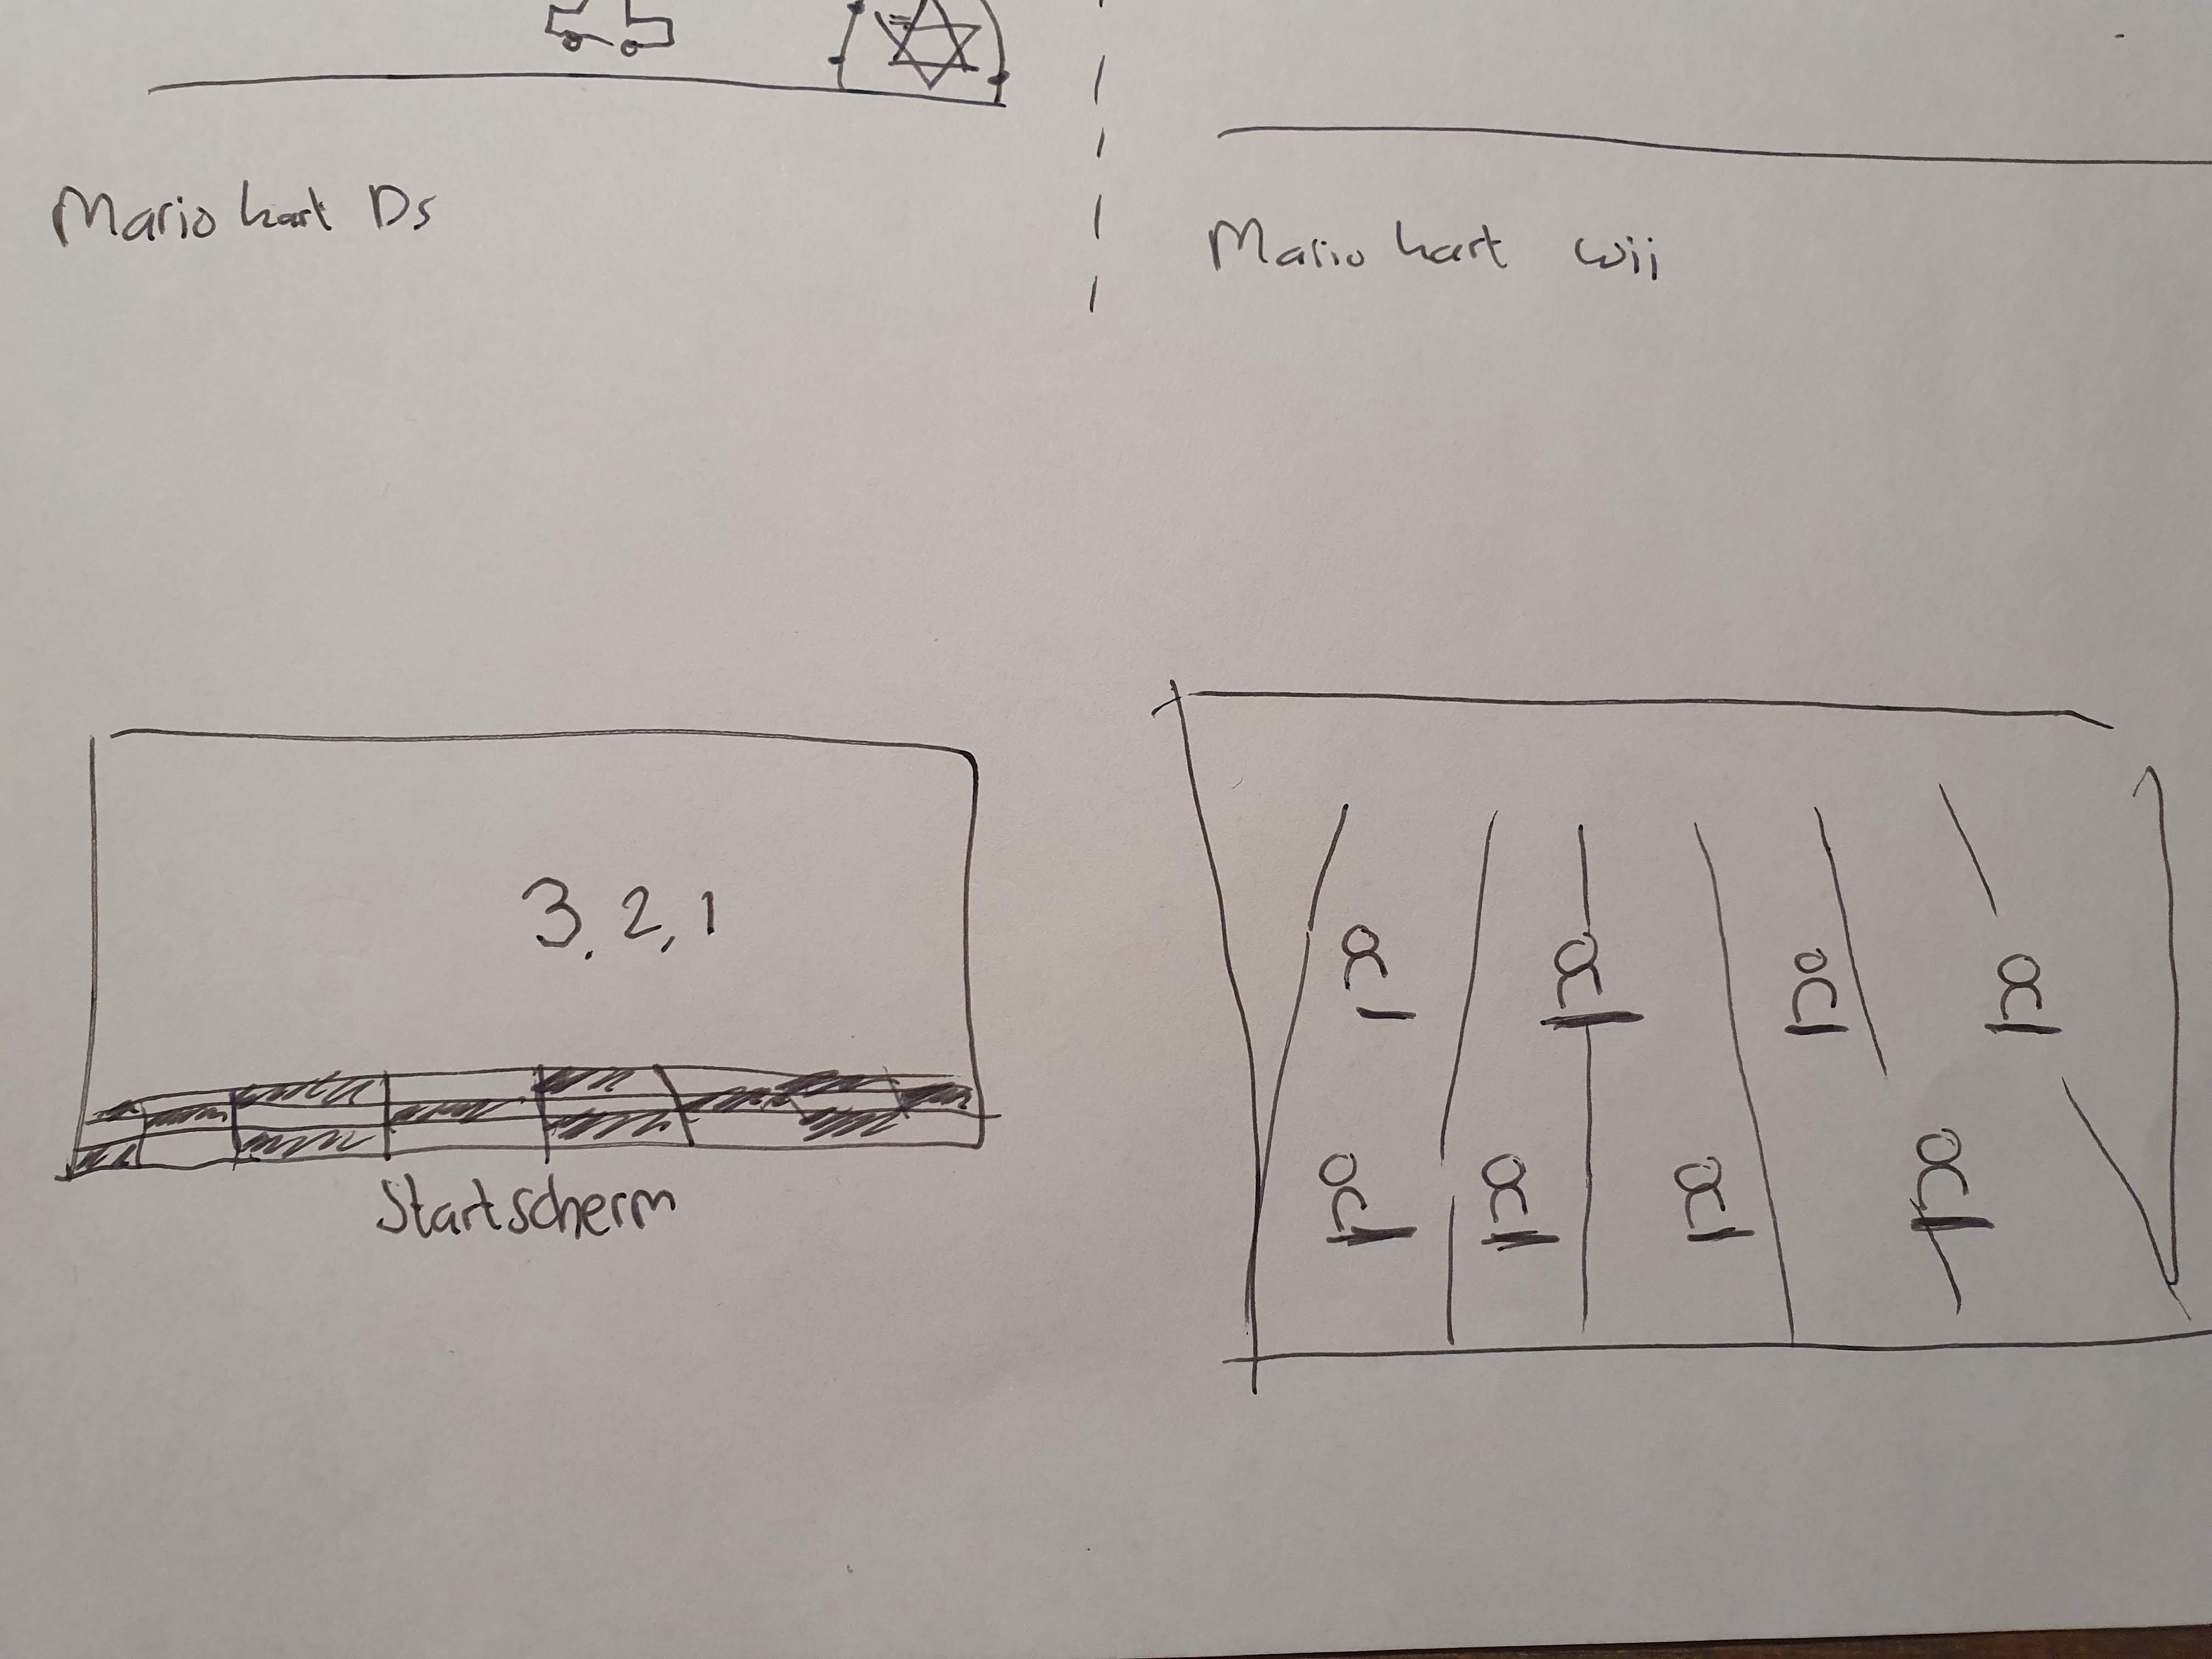 Mario kart Ds
Mario kart wii
3, 2, 1
Startscherm